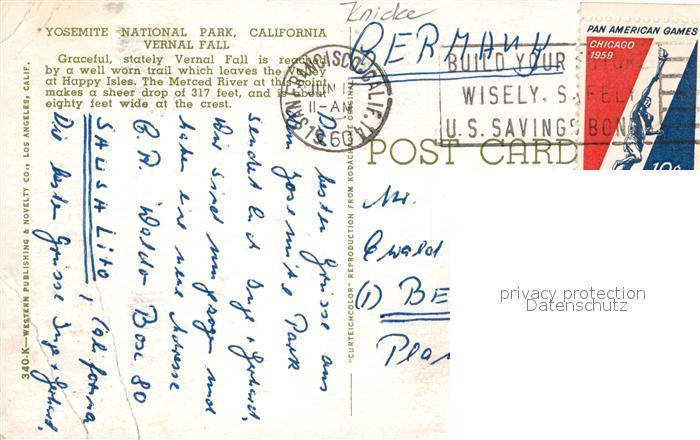 Knicke
YOSEMITE NATIONAL PARK, CALIFORNIA
VERNAL FALL
Graceful, stately Vernal Fall is reached
by a well worn trail which leaves the
at Happy Isles. The Merced River at this point
makes a sheer drop of 317 feet, and is about
eighty feet wide at the crest.
BERMANY
SAN FRANCISCO, CALIF. 14
JUN 1
11-AM
1960
BUILD YOUR
WISELY, SAFELY
U.S. SAVINGS BONDS
PAN AMERICAN GAMES
CHICAGO
1959
10¢
POST CARD
Die besten Grüsse aus
dem Josemite Park
sendet Euch Inge + Gerhard.
Wir sind umgezogen und
haben eine neue Adresse
Waldo Box 80
SAUSALITO, California
Die besten Grüsse Inge + Gerhard.
Mr.
Ewald
(1) BE
Pla
privacy protection
Datenschutz
340-K—WESTERN PUBLISHING & NOVELTY CO., LOS ANGELES, CALIF.
"CURTEICHCOLOR" REPRODUCTION FROM KODACHROME ORIGINAL